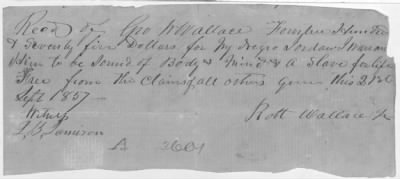 Recd of Geo W Wallace Hundred
& Seventy five Dollars for My Negro Jordan I Warrant
Him to be Sound of Body & Mind & A Slave for life
Free from the Claims of all others Given this 21st
Sept 1857
Witness
Robt Wallace
J. B. Jamison
A 3601